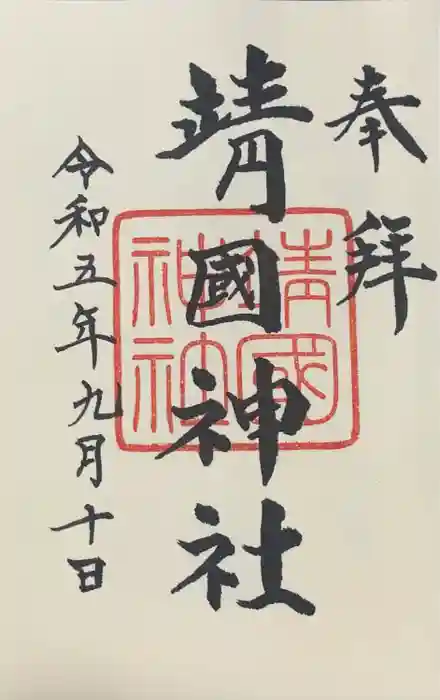 奉拝
靖國神社
靖國
神社
令和五年九月十日